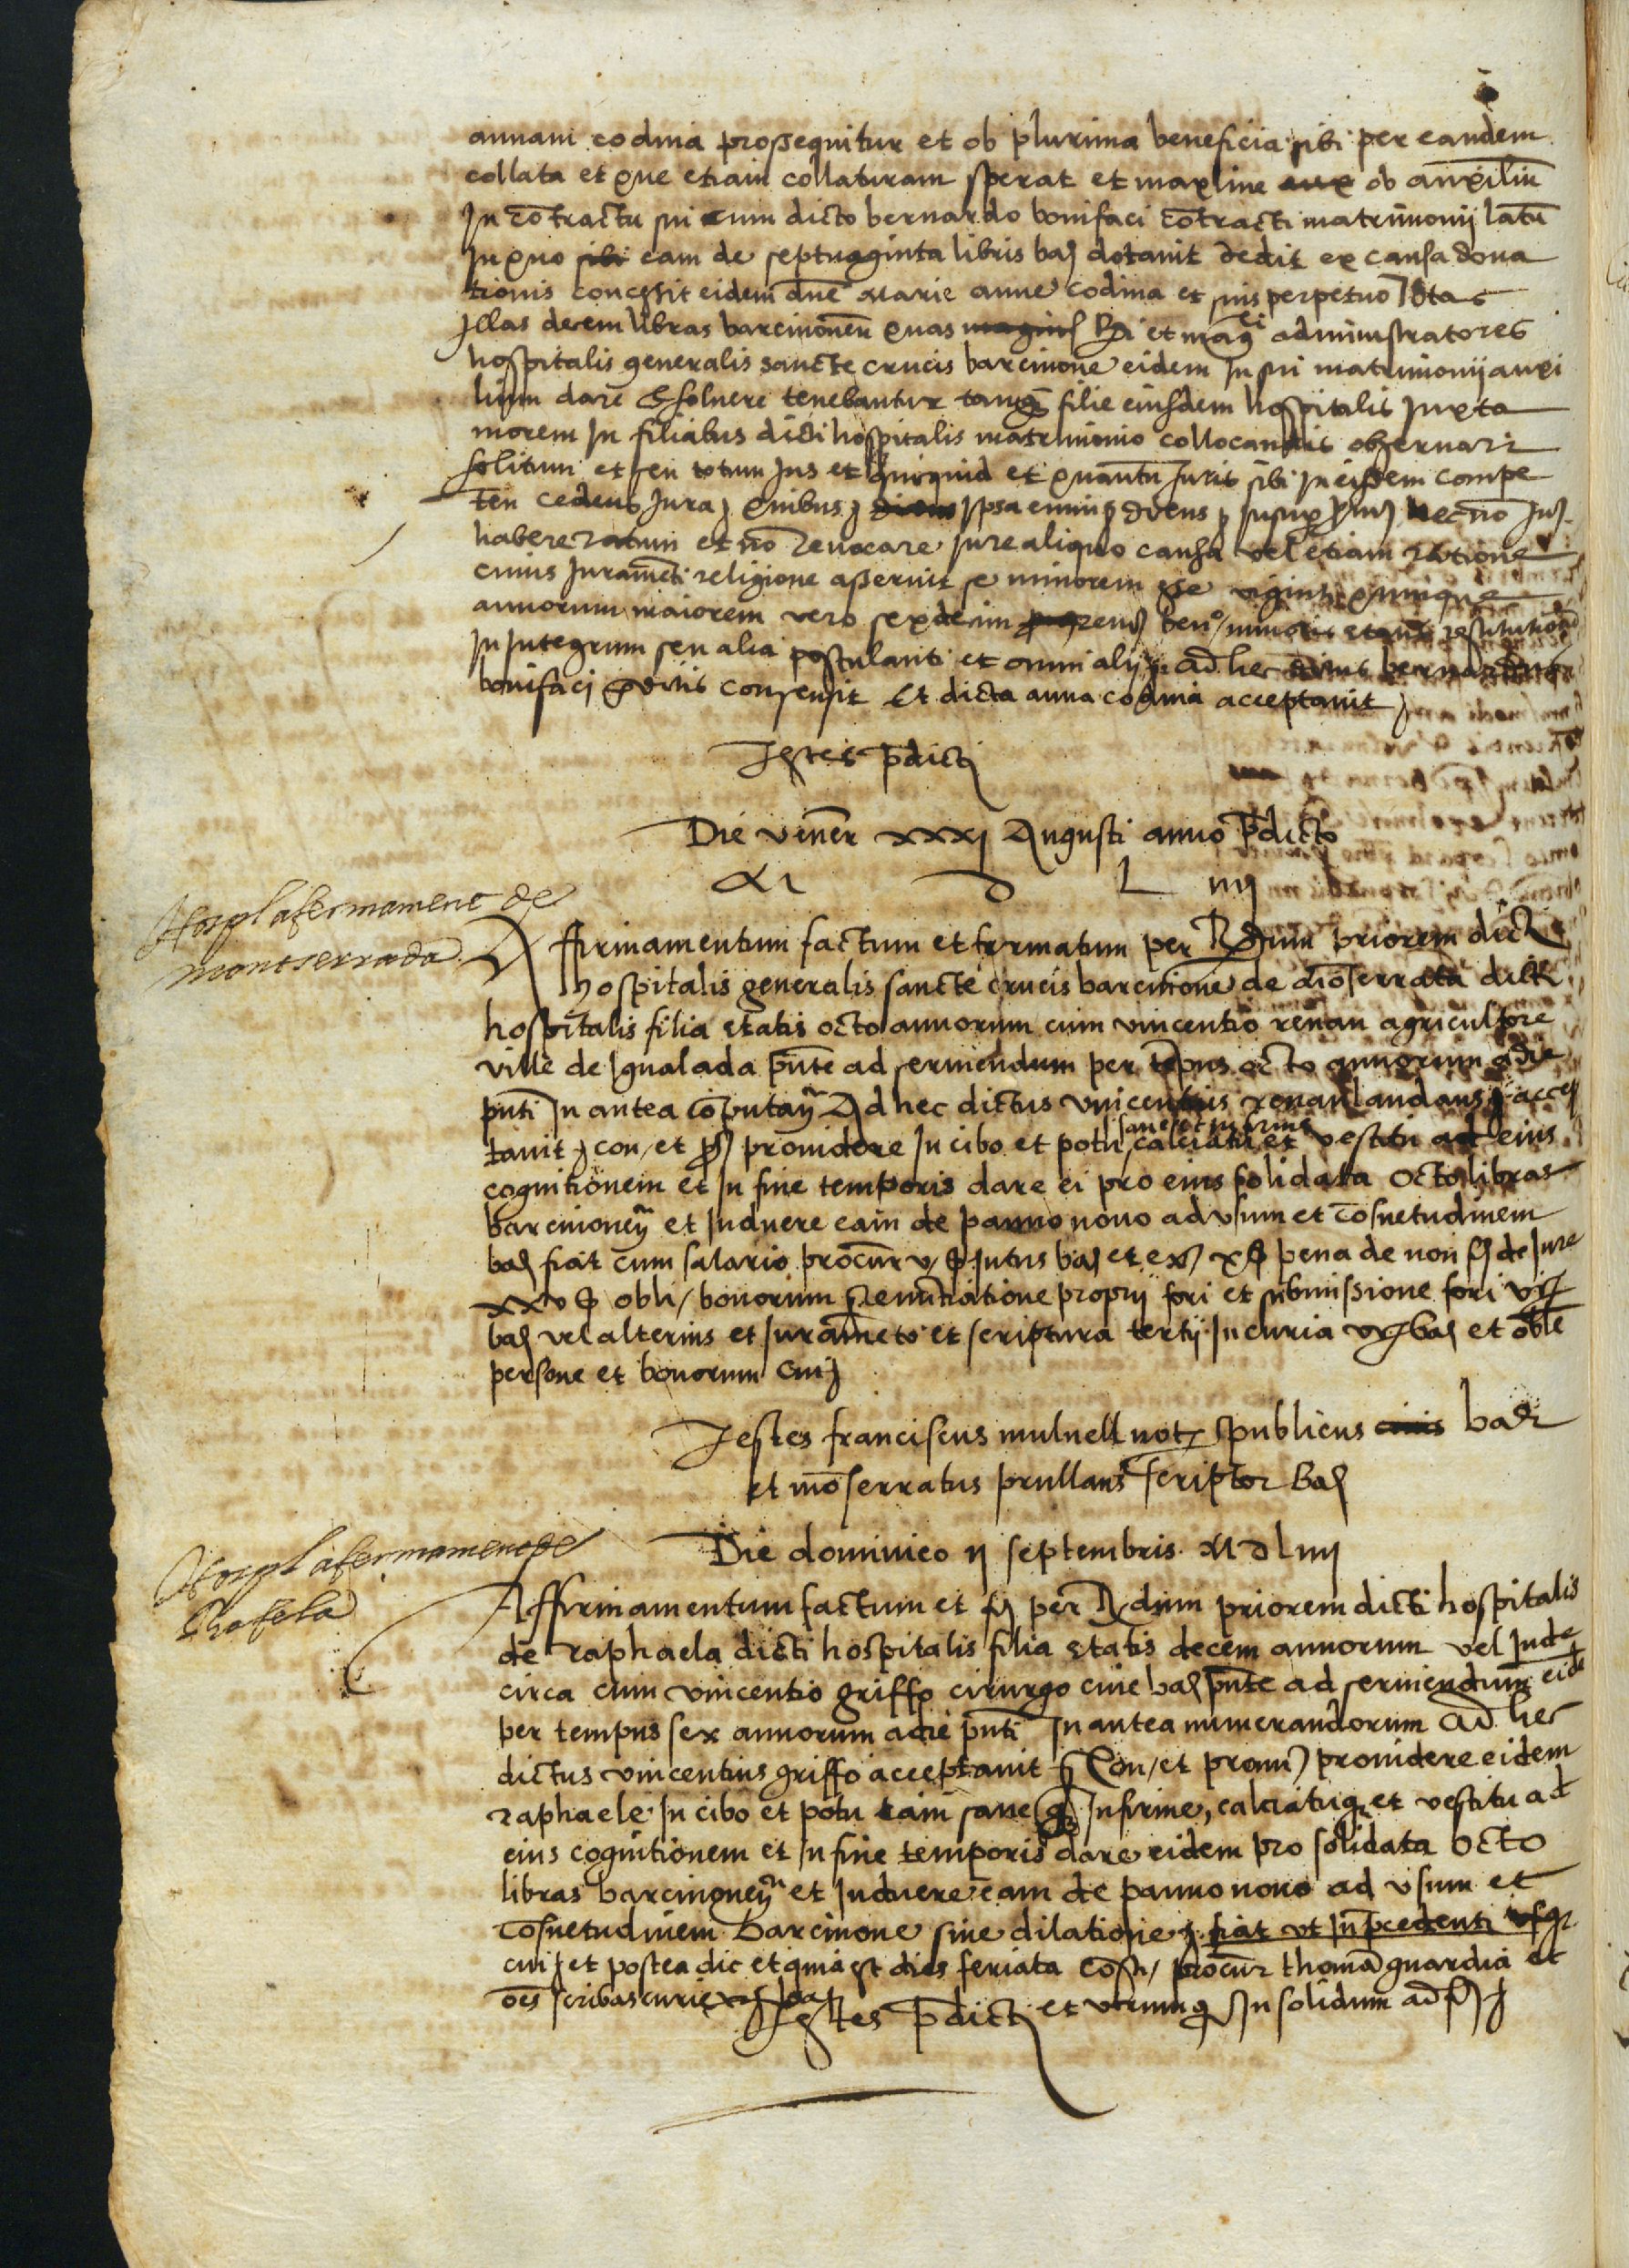 annam codina prossequitur et ob plurima beneficia sibi per eandem
collata et que etiam collaturam sperat et maxime aux ob auxiliū
In cōtractu sui cum dicto bernardo bonifaci cōtracti matrimonij latū
In quo sibi eam de septuaginta libris bar dotauit dedit ex causa dona
tionis concessit eidem dn̄e Marie anne codina et suis perpetuo totas
Illas decem libras barcinonen̄ quas et mag.ci administratores
hospitalis generalis sancte crucis barcinone eidem In sui matrimonij auxi
lium dare et soluere tenebantur tanq̄ filie eiusdem hospitalis Iuxta
morem In filiabus dicti hospitalis matrimonio collocandis obseruari
solitum et seu totum Ius et quicquid et quantū Iuris sibi In eisdem compe
ten cedens Iura quibus Ipsa enim
habere ratum et nō reuocare Iure aliquo causa vel etiam ratione
cuius Iuramēti religione asseruit se minorem esse viginti quinque
annorum maiorem vero sexdecim ben.o minoris etatis restitutionē
In Integrum seu alia postulanti et omni alij ad hec dictus bernardus
bonifaci consensit Et dicta anna codina acceptauit
Testes p̄dicti
Die vener̄ xxxj Augusti anno p̄dicto
M D L iiij
Hospl afermament de
montserrada
Affirmamentum factum et firmatum per R.dum priorem dicti
hospitalis generalis sancte crucis barcinone de mōserrata dicti
hospitalis filia etatis octo annorum cum vincentio renau agricultore
ville de Igualada pn̄te ad seruiendum per tēpus octo annorum a die
pn̄ti In antea cōputan̄ Ad hec dictus vincentius renau laudans accep
tauit con/ et prouidere In cibo et potu sane et infirme calciatu et vestitu ad eius
cognitionem et In fine temporis dare ei pro eius solidata octo libras
barcinonen̄ et Induere eam de panno nouo ad vsum et cōsuetudinem
bar fiat cum salario procur̄ v Intus bar et ex x pena de non de Iure
xxv obli/ bonorum renuntiatione proprij fori et submissione fori
bar vel alterius et Iuramēto et scriptura tertij In curia bar et oble
persone et bonorum
Testes franciscus mulnell not publicus ciuis bar
et mōserratus prullans scriptor bar
Die dominico ij septembris M D L iiij
Hospl afermament de
Rafela
Affirmamentum factum et per R.dum priorem dicti hospitalis
de raphaela dicti hospitalis filia etatis decem annorum vel Inde
circa cum vincentio griffo cirurgo ciue bar pn̄te ad seruiendum eidē
per tempus sex annorum a die pn̄ti In antea numerandorum ad hec
dictus vincentius griffo acceptauit Con/ et promi prouidere eidem
raphaele In cibo et potu tam sane q Infirme, calciatuq et vestitu ad
eius cognitionem et In fine temporis dare eidem pro solidata octo
libras barcinonen̄ et Induere eam de panno nouo ad vsum et
cōsuetudinem barcinone sine dilatione fiat vt In p̄cedenti vsq
et postea dic et quia est dies feriata cōsti/ procur̄ thomā guardia et
oēs scribas curie bar et vtrumq Insolidum ad
Testes p̄dicti